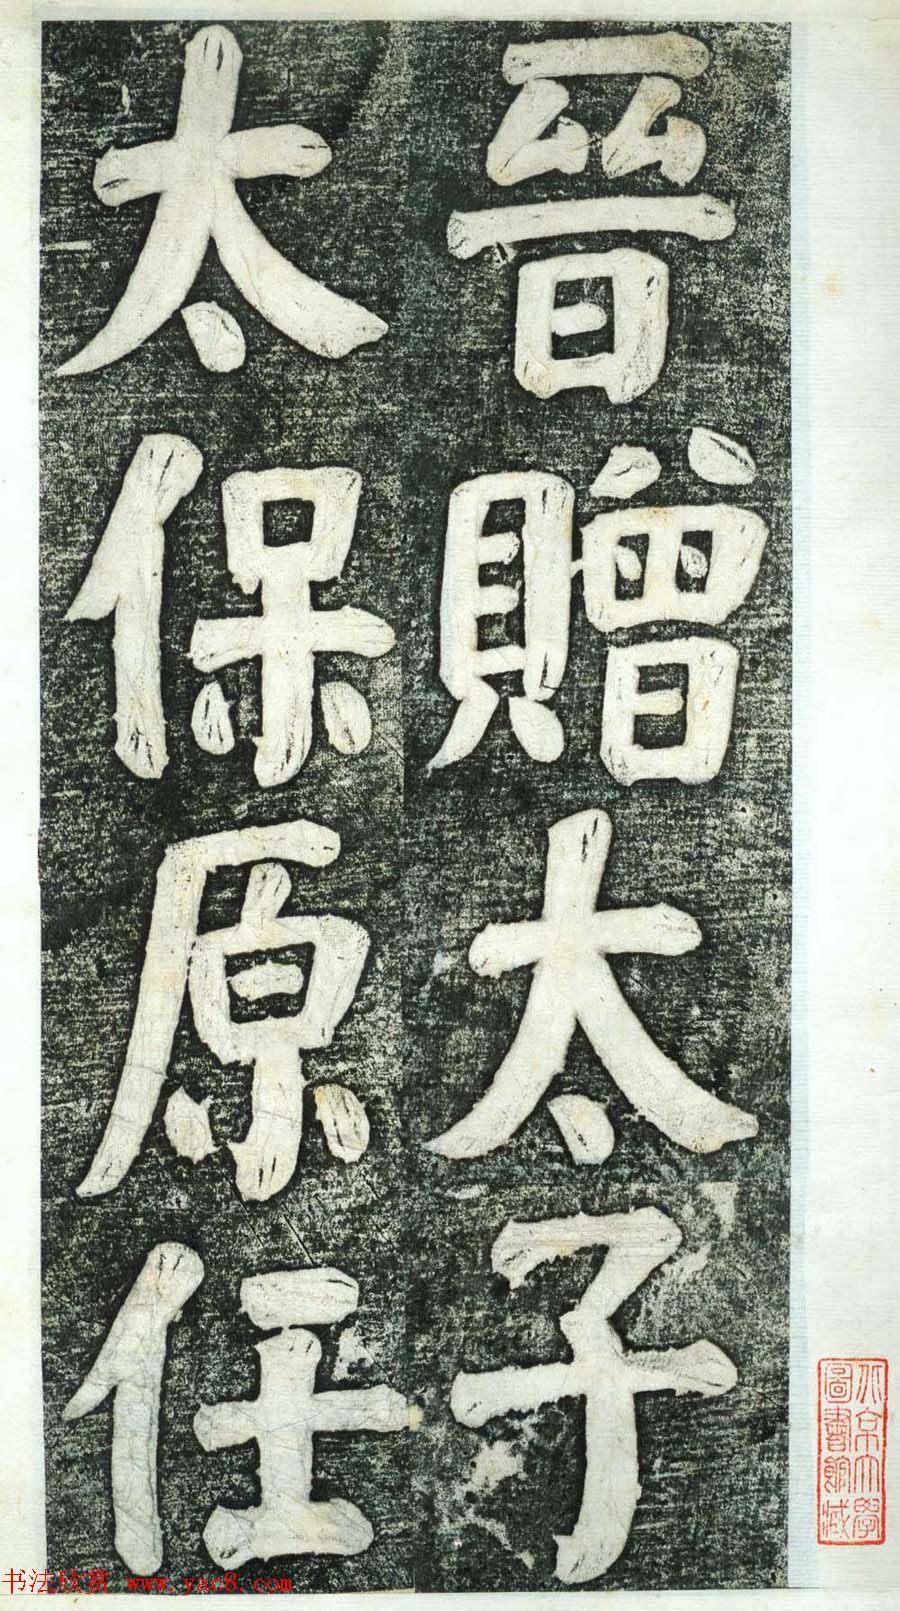 晉贈太子
太保原任
北京大學
圖書館藏
书法欣赏 www.yac8.com